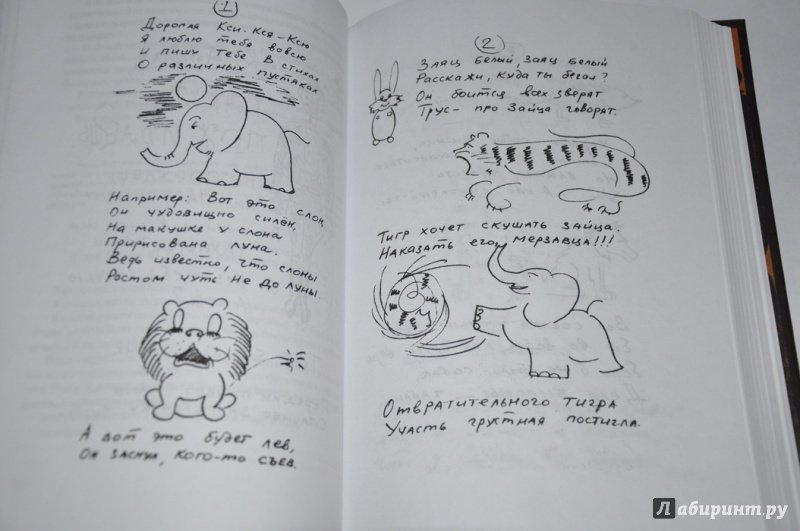 1
Дорогая Кси-Кся-Ксю
Я люблю тебя вовсю
И пишу тебе в стихах
О различных пустяках
Например: Вот это слон,
Он чудовищно силён,
На макушке у слона
Пририсована луна.
Ведь известно, что слоны
Ростом чуть не до луны.
А вот это будет лев,
Он заснул, кого-то съев.
2
Заяц белый, заяц белый
Расскажи, куда ты бегал?
Он боится всех зверят
Трус - про зайца говорят.
Тигр хочет скушать зайца.
Наказать его, мерзавца!!!
Отвратительного тигра
Участь грустная постигла.
Лабиринт.ру